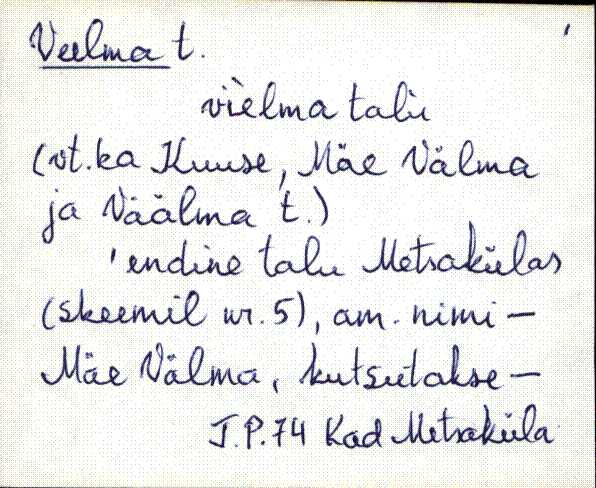 Veelma t.
vìelma talu
(vt. ka Kuuse, Mäe Välma
ja Väälma t.)
'endine talu Metsakülas
(skeemil nr. 5), am. nimi —
Mäe Välma, kutsutakse —
J.P. 74 Kad Metsaküla